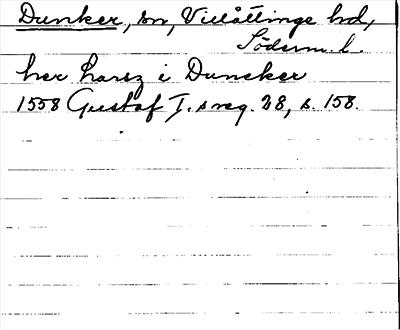 Dunker, sn, Villåttinge hd,
Söderm. l.
her larsz i Duncker
1558 Gustaf I. s reg. 28, s. 158.